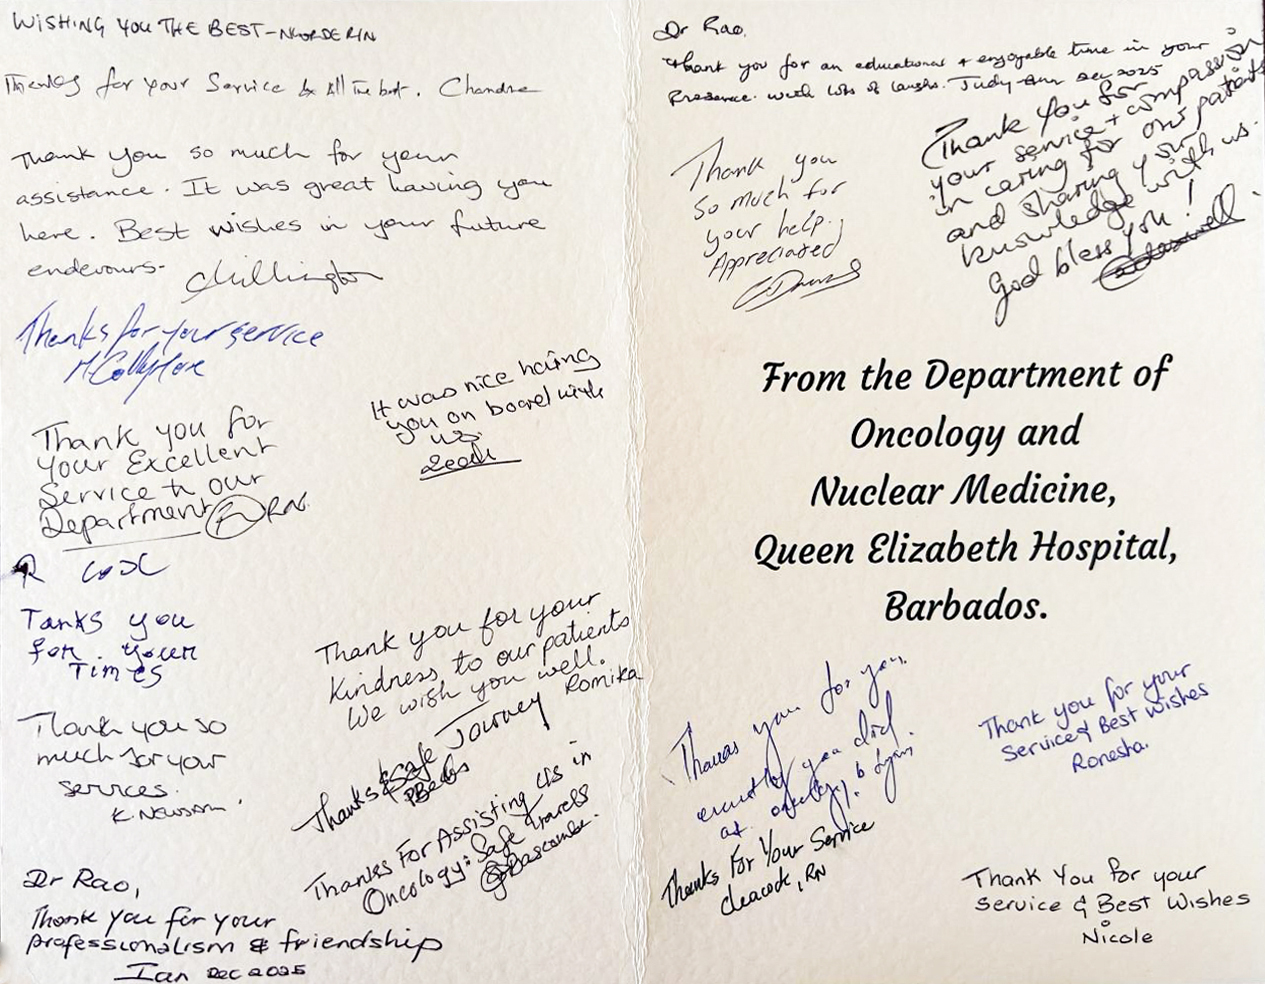 WISHING YOU THE BEST -
Thanks for your Service & All the best. Chandra
Thank you so much for your
assistance. It was great having you
here. Best wishes in your future
endevours-
Thanks for your service
Thank you for
your Excellent
Service to our
Department RN.
Tanks you
for your
Times
Thank you so
much for your
services.
K. Newsam.
Dr Rao,
Thank you for your
professionalism & friendship
Ian Dec 2025
It was nice having
you on board with
us.
Leah
Thank you for your
kindness, to our patients
We wish you well.
Romika
Thanks & Safe Journey
Thanks For Assisting Us in
Oncology: Safe travels
Bascombe.
Dr Rao,
Thank you for an educational & enjoyable time in your
Presence. With lots of laughs. Judy-Ann Dec 2025
Thank you
so much for
your help.
Appreciated
Thank You for
your service + compassion
in caring for our patients
and sharing your
knowledge with us.
God bless you!
From the Department of
Oncology and
Nuclear Medicine,
Queen Elizabeth Hospital,
Barbados.
you for you
you did
at oncology.
Thanks For Your Service
, RN
Thank you for your
Service & Best Wishes
Ronesha.
Thank You for your
Service & Best Wishes
Nicole